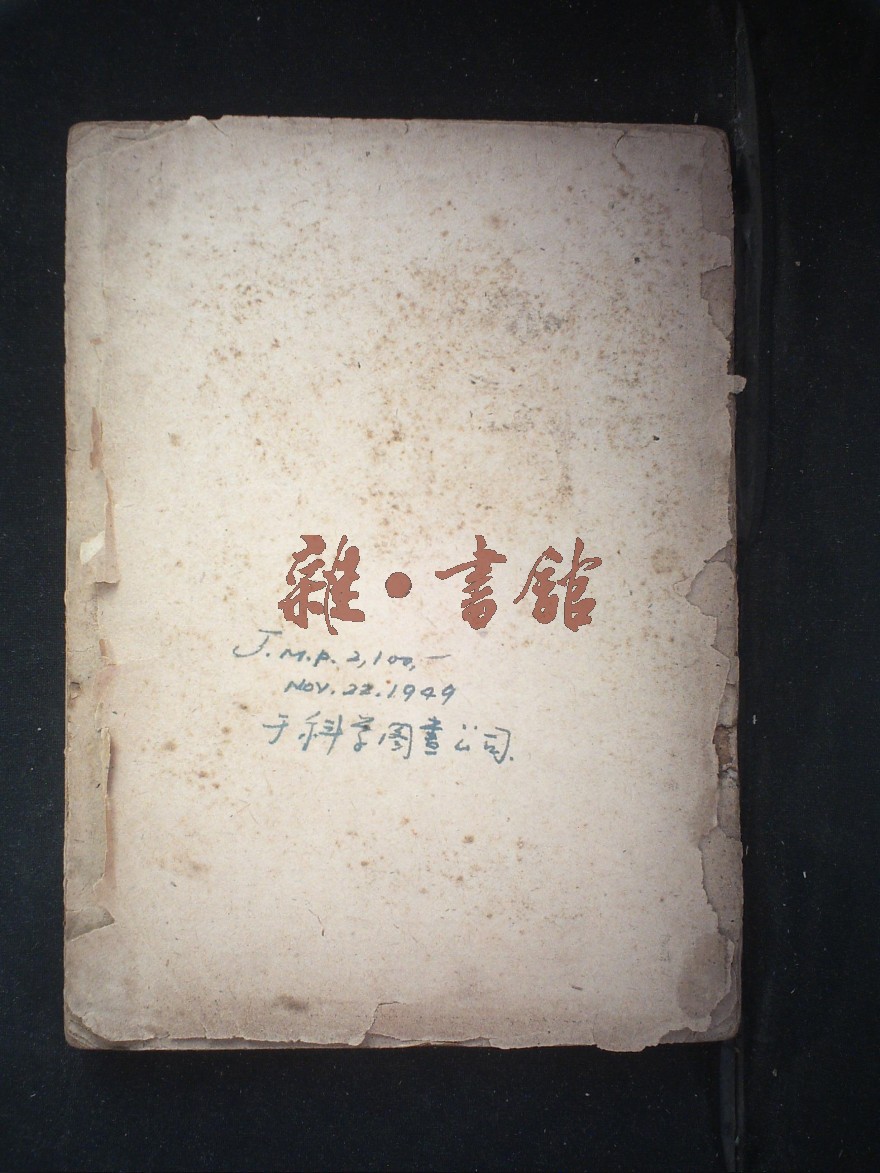 雜·書館
J.M.P. 2,100,—
Nov. 22. 1949
于科学图書公司.